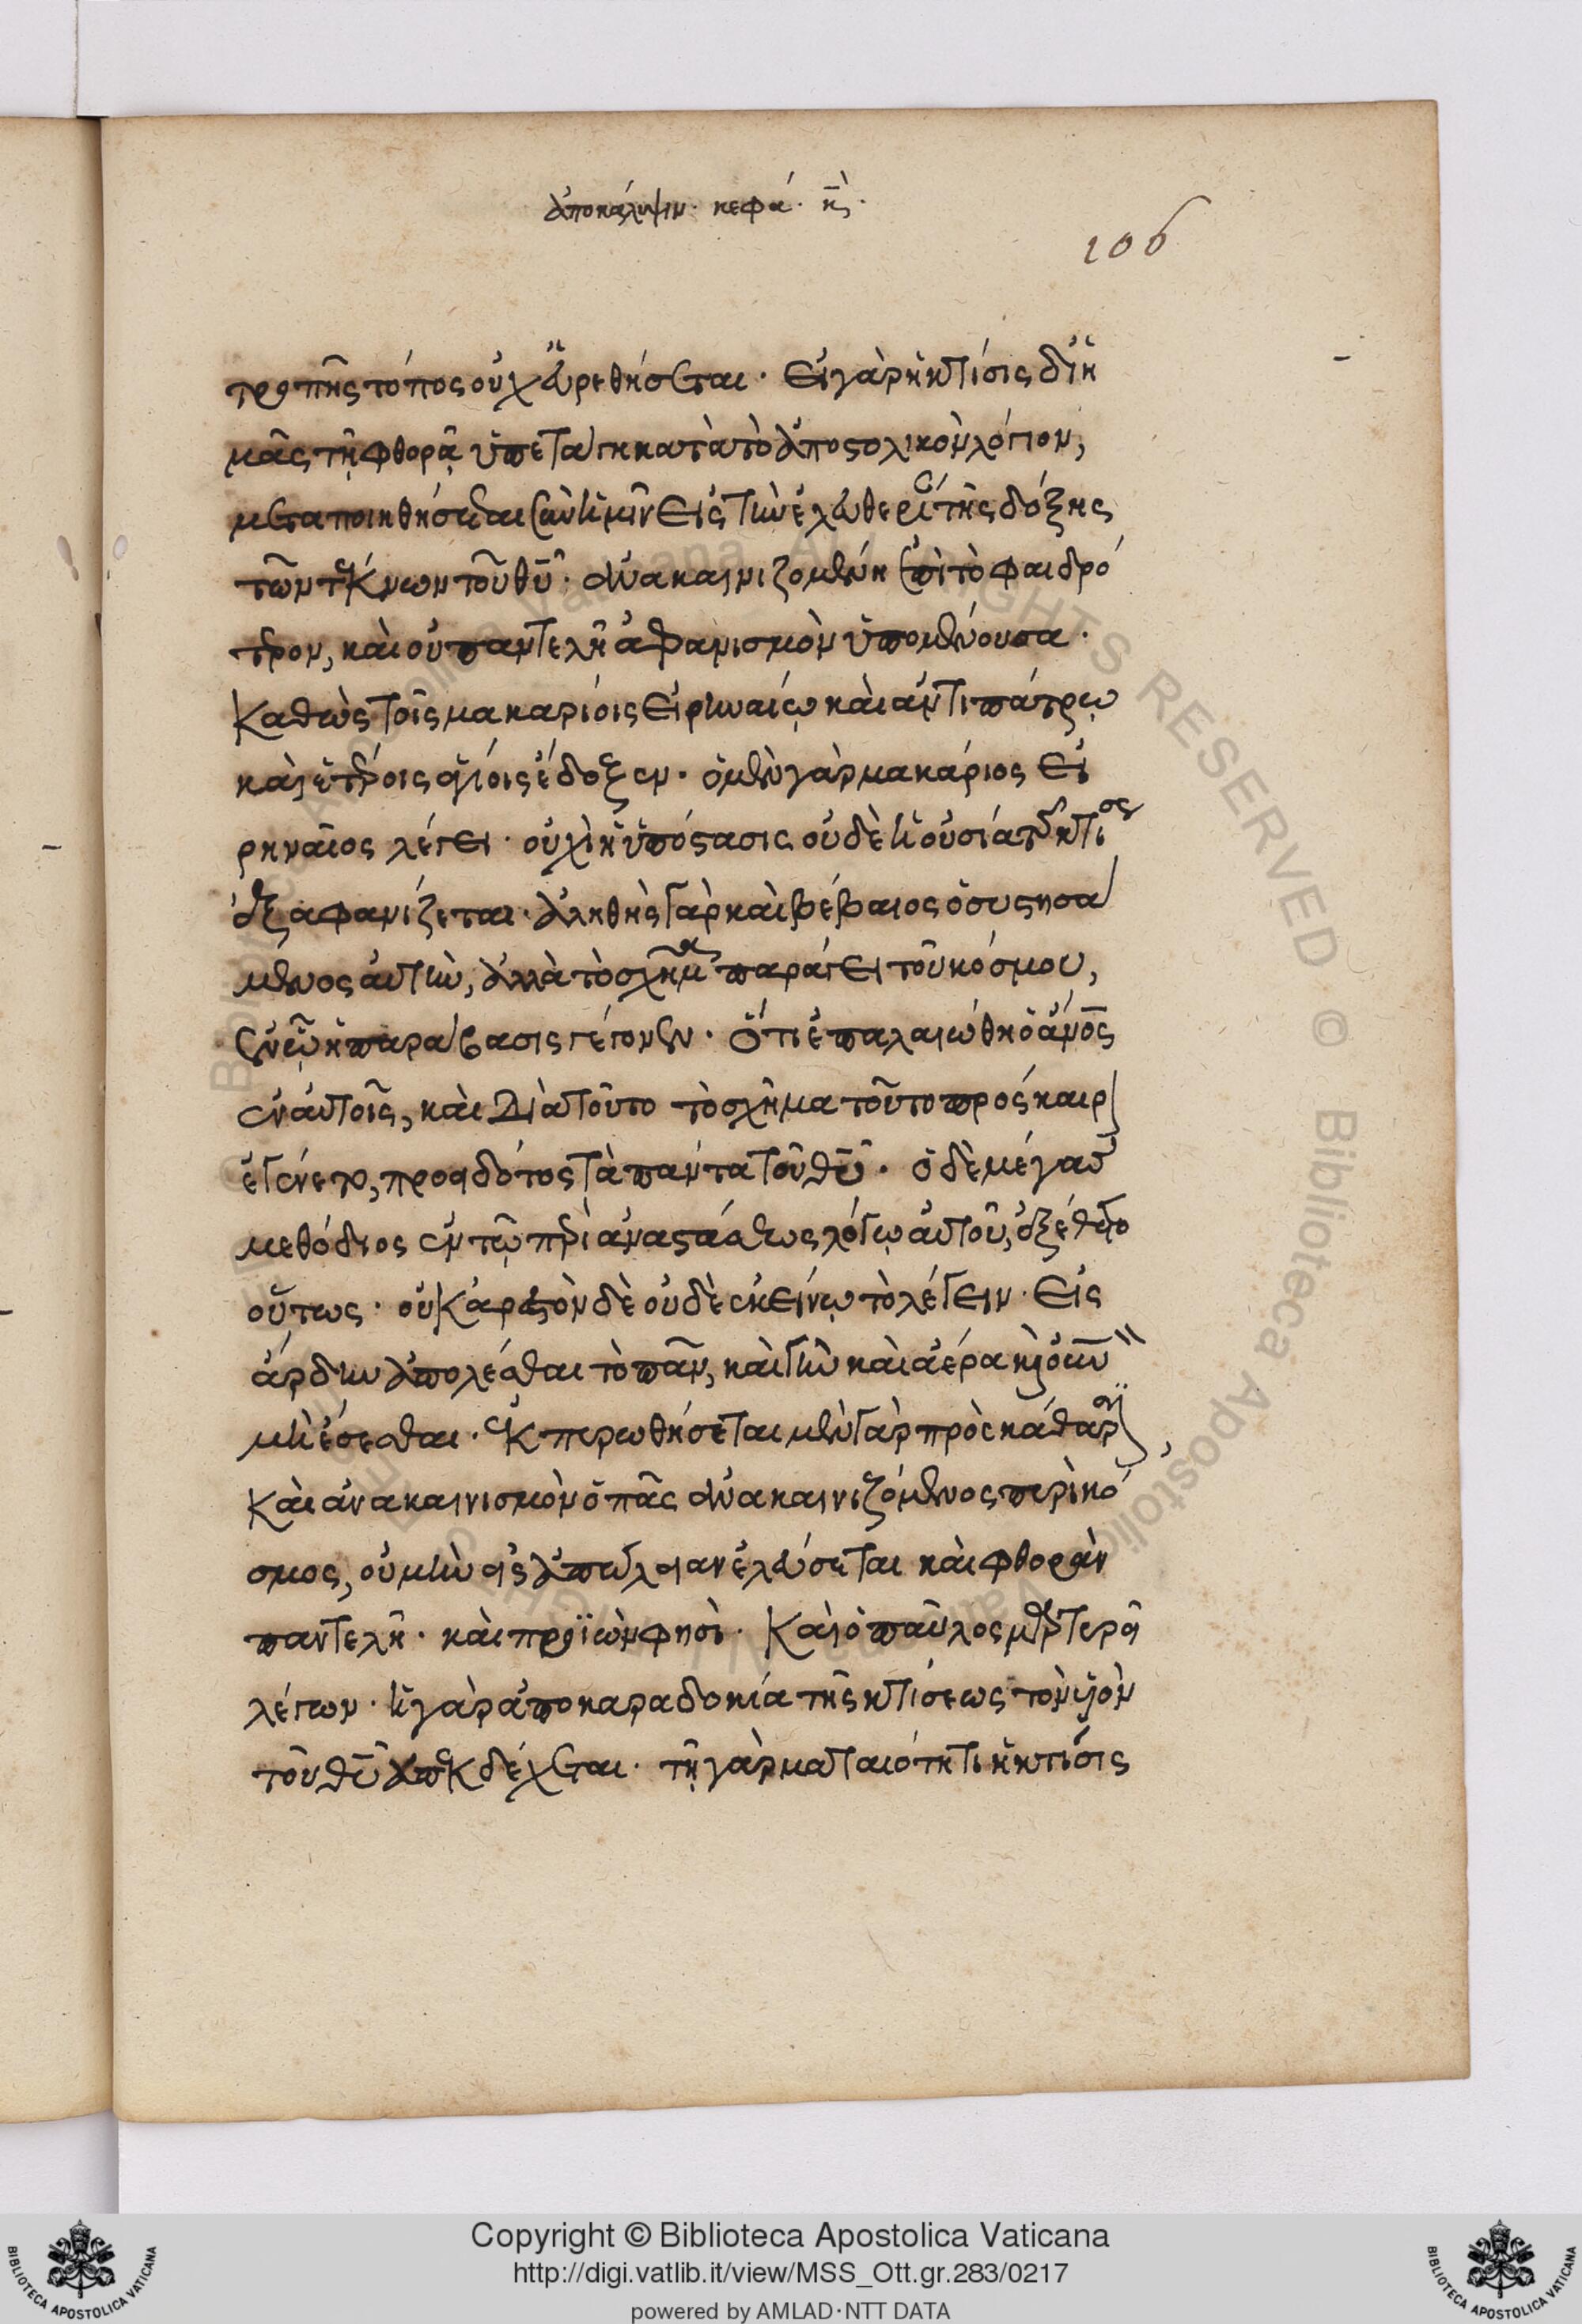 ἀποκάλυψιν. κεφά. κς.
106
τροπῆς τόπος οὐχ εὑρεθήσεται. εἰ γὰρ ἡ κτίσις δι' ἡ
μᾶς τῇ φθορᾷ ὑπετάγη κατὰ τὸ ἀποστολικὸν λόγιον,
μεταποιηθήσεται σὺν ἡμῖν εἰς τὴν ἐλευθερί τῆς δόξης
τῶν τέκνων τοῦ θῦ. ἀνακαινιζομένη ἐπὶ τὸ φαιδρό
τερον, καὶ οὐ παντελῆ ἀφανισμὸν ὑπομένουσα.
καθὼς τοῖς μακαρίοις εἰρηναίῳ καὶ ἀντιπάτρῳ
καὶ ἑτέροις ἁγίοις ἔδοξεν. ὁ μὲν γὰρ μακάριος εἰ
ρηναῖος λέγει. οὐχὶ ἡ ὑπόστασις οὐδὲ ἡ οὐσία τῆς κτίσε
ἐξαφανίζεται. ἀληθὴς γὰρ καὶ βέβαιος ὁ συστησά
μενος αὐτὴν, ἀλλὰ τὸ σχῆμα παράγει τοῦ κόσμου,
ἐν ᾧ ἡ παράβασις γέγονεν. ὅτι ἐπαλαιώθη ὁ ἄνος
ἐν αὐτοῖς, καὶ διὰ τοῦτο τὸ σχῆμα τοῦτο πρόσκαιρ
ἐγένετο, προειδότος τὰ πάντα τοῦ θῦ. ὁ δὲ μέγας
μεθόδιος ἐν τῷ περὶ ἀναστάσεως λόγῳ αὐτοῦ, ἐξέθετο
οὕτως. οὐκ ἀρεστὸν δὲ οὐδὲ ἐκείνῳ τὸ λέγειν. εἰς
ἄρδην ἀπολέσθαι τὸ πᾶν, καὶ γῆν καὶ ἀέρα καὶ οὐνὸν
μὴ ἔσεσθαι. ἐκπυρωθήσεται μὲν γὰρ πρὸς κάθαρσι
καὶ ἀνακαινισμὸν ὁ πᾶς ἀνακαινιζόμενος περὶ κό
σμος, οὐ μὴν εἰς ἀπώλειαν ἐλεύσεται καὶ φθορὰν
παντελῆ. καὶ προϊὼν φησὶ. καὶ ὁ παῦλος μαρτυρεῖ
λέγων. ἡ γὰρ ἀποκαραδοκία τῆς κτίσεως τὸν υἱὸν
τοῦ θῦ ἀπεκδέχεται. τῇ γὰρ ματαιότητι ἡ κτίσις
Copyright © Biblioteca Apostolica Vaticana
http://digi.vatlib.it/view/MSS_Ott.gr.283/0217
powered by AMLAD·NTT DATA